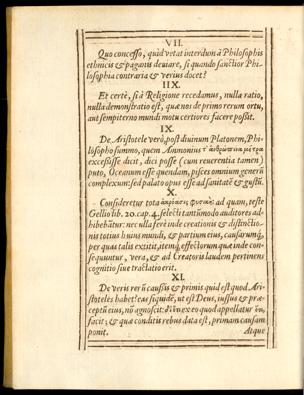 VII.
Quo concesso, quid vetat interdum à Philosophis
ethnicis & paganis deuiare, si quando sanctior Phi-
losophia contraria & verius docet?
IIX.
Et certè, si à Religione recedamus, nulla ratio,
nulla demonstratio est, quæ nos de primo rerum ortu,
aut sempiterno mundi motu certiores facere possit.
IX.
De Aristotele verò, post diuinum Platonem, Phi-
losopho summo, quem Ammonius τ' ἀνθρώπινα μέτρα
excessisse dicit, dici posse (cum reuerentia tamen)
puto, Oceanum esse quendam, pisces omnium generū
complexum: sed palato opus esse ad sanitatē & gustū.
X.
Consideretur tota φυσικὴ ad quam, teste
Gellio lib. 20. cap. 4. selecti tantūmodo auditores ad-
hibebātur: nec ulla ferè inde creationis & distinctio-
nis totius huius mundi, & partium eius, causarumq́,
per quas talis exstitit, itemq́, effectorum quæ inde con-
sequuntur, vera, & ad Creatoris laudem pertinens
cognitio siue tractatio erit.
XI.
De veris rerū causis & primis quid est quod Ari-
stoteles habet? eas siquidē, ut est Deus, iussus & præ-
ceptū eius, nō agnoscit: ex eo quod appellatur ὀν,
facit; & quæ conditis rebus data est, primam causam
ponit. Atque